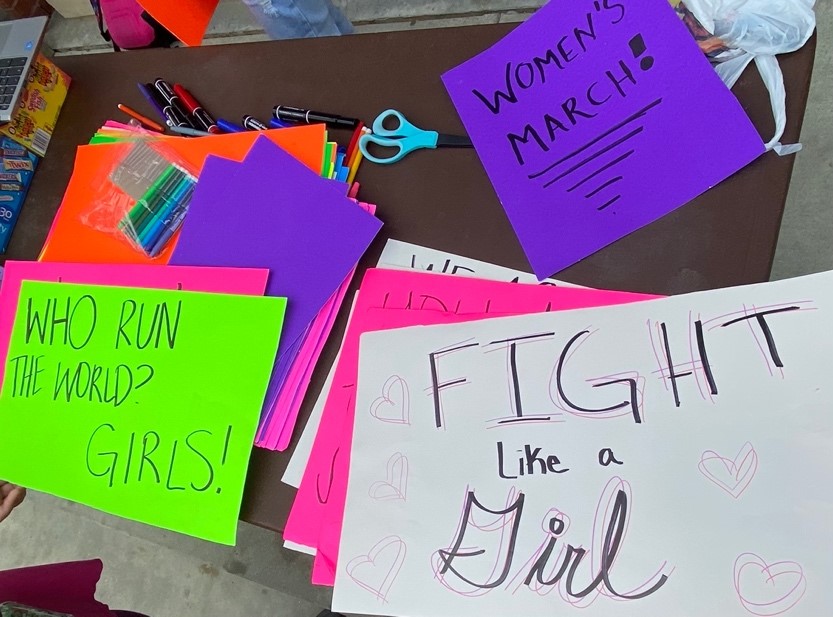 WOMEN'S
MARCH!
WHO RUN
THE WORLD?
GIRLS!
FIGHT
Like a
Girl